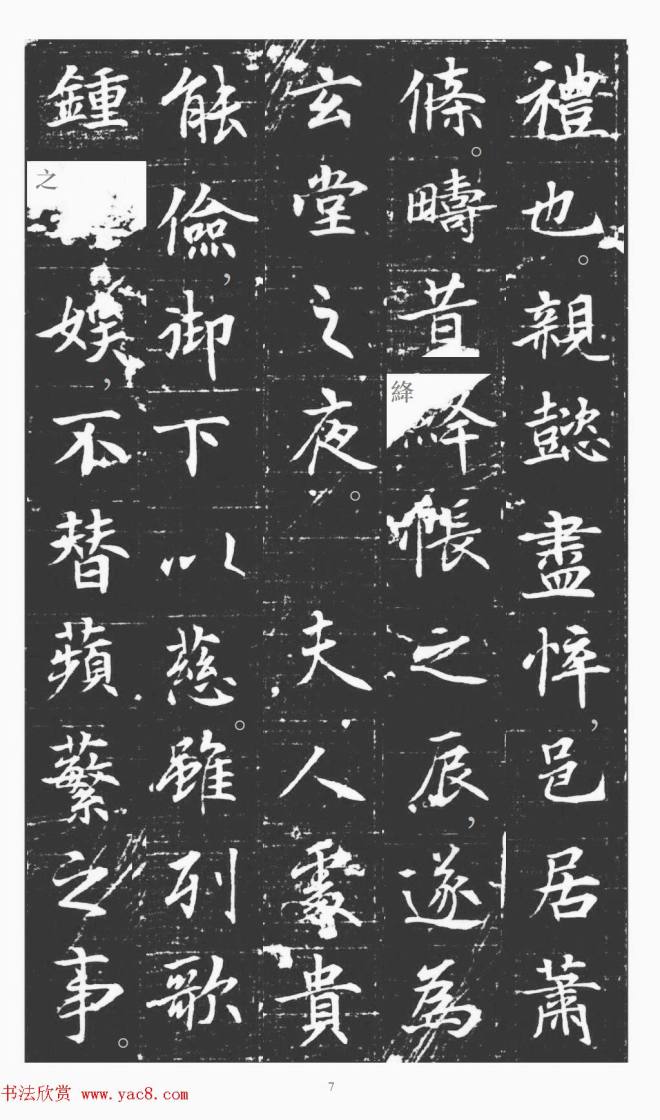 禮也。親懿盡悴，邑居蕭
條。疇昔絳帳之辰，遂為
玄堂之夜。夫人處貴
能儉，御下以慈。雖列歌
鍾之娱，不替蘋蘩之事。
7
书法欣赏 www.yac8.com